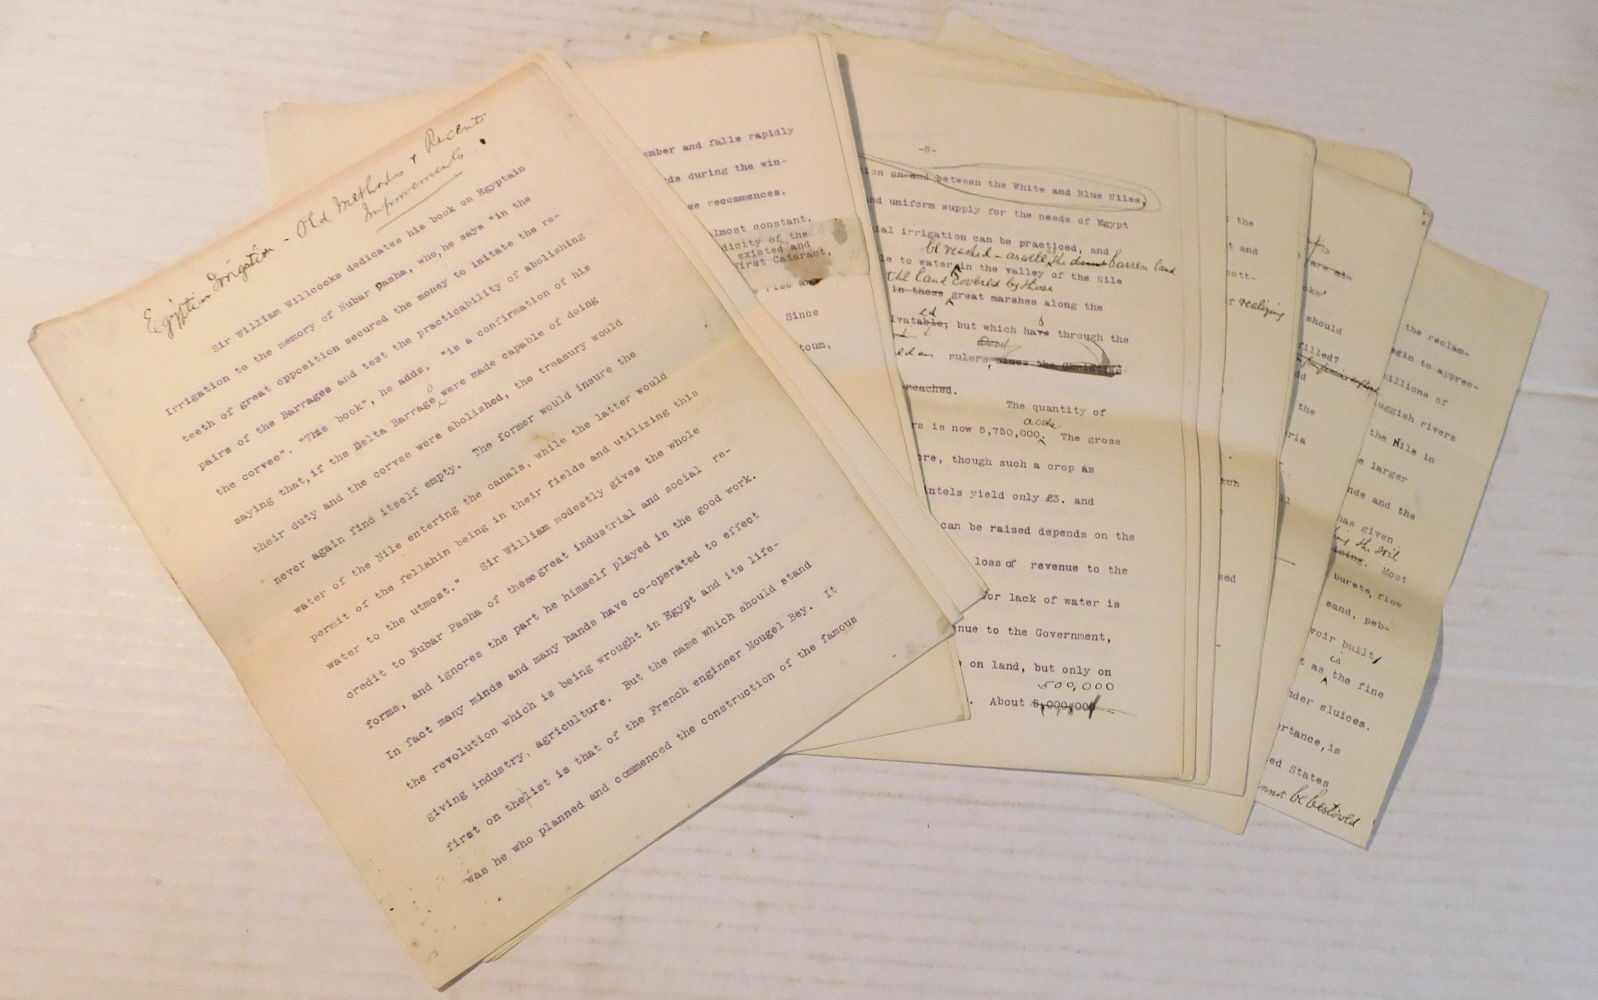 Egyptian Irrigation - Old Methods & Recent
Improvements.
Sir William Willcocks dedicates his book on Egyptain
Irrigation to the memory of Nubar Pasha, who, he says "in the
teeth of great opposition secured the money to imitate the re-
pairs of the Barrages and test the practicability of abolishing
the corvee". "This book", he adds, "is a confirmation of his
saying that, if the Delta Barrages were made capable of doing
their duty and the corvee were abolished, the treasury would
never again find itself empty. The former would insure the
water of the Nile entering the canals, while the latter would
permit of the fellahin being in their fields and utilizing this
water to the utmost." Sir William modestly gives the whole
credit to Nubar Pasha of these great industrial and social re-
forms, and ignores the part he himself played in the good work.
In fact many minds and many hands have co-operated to effect
the revolution which is being wrought in Egypt and its life-
giving industry, agriculture. But the name which should stand
first on the list is that of the French engineer Mougel Bey. It
was he who planned and commenced the construction of the famous
ember and falls rapidly
ds during the win-
se recommences.
lmost constant.
dicity of the
existed and
First Cataract,
rise an
Since
toum,
-8-
ion on and between the White and Blue Niles,
nd uniform supply for the needs of Egypt
ial irrigation can be practiced, and
be reached - as well the barren land
le to water in the valley of the Nile
the land covered by those
in those great marshes along the
ed s
ivatable, but which have through the
rulers, since the Christian
reached.
The quantity of
acre
rs is now 5,750,000. The gross
ere, though such a crop as
intels yield only £3. and
can be raised depends on the
loss of revenue to the
for lack of water is
enue to the Government,
e on land, but only on
500,000
. About 5,000,000
the
t and
ott-
f realizing
ich
sed
are al-
oks'
should
filled?
dd
the
ria
the reclam-
egin to apprec-
millions of
uggish rivers
the Nile in
e larger
nds and the
has given
the soil
ising. Most
bursts, flow
sand, peb-
voir built,
is
t as the fine
nder sluices.
ortance, is
ed States
be bestowed